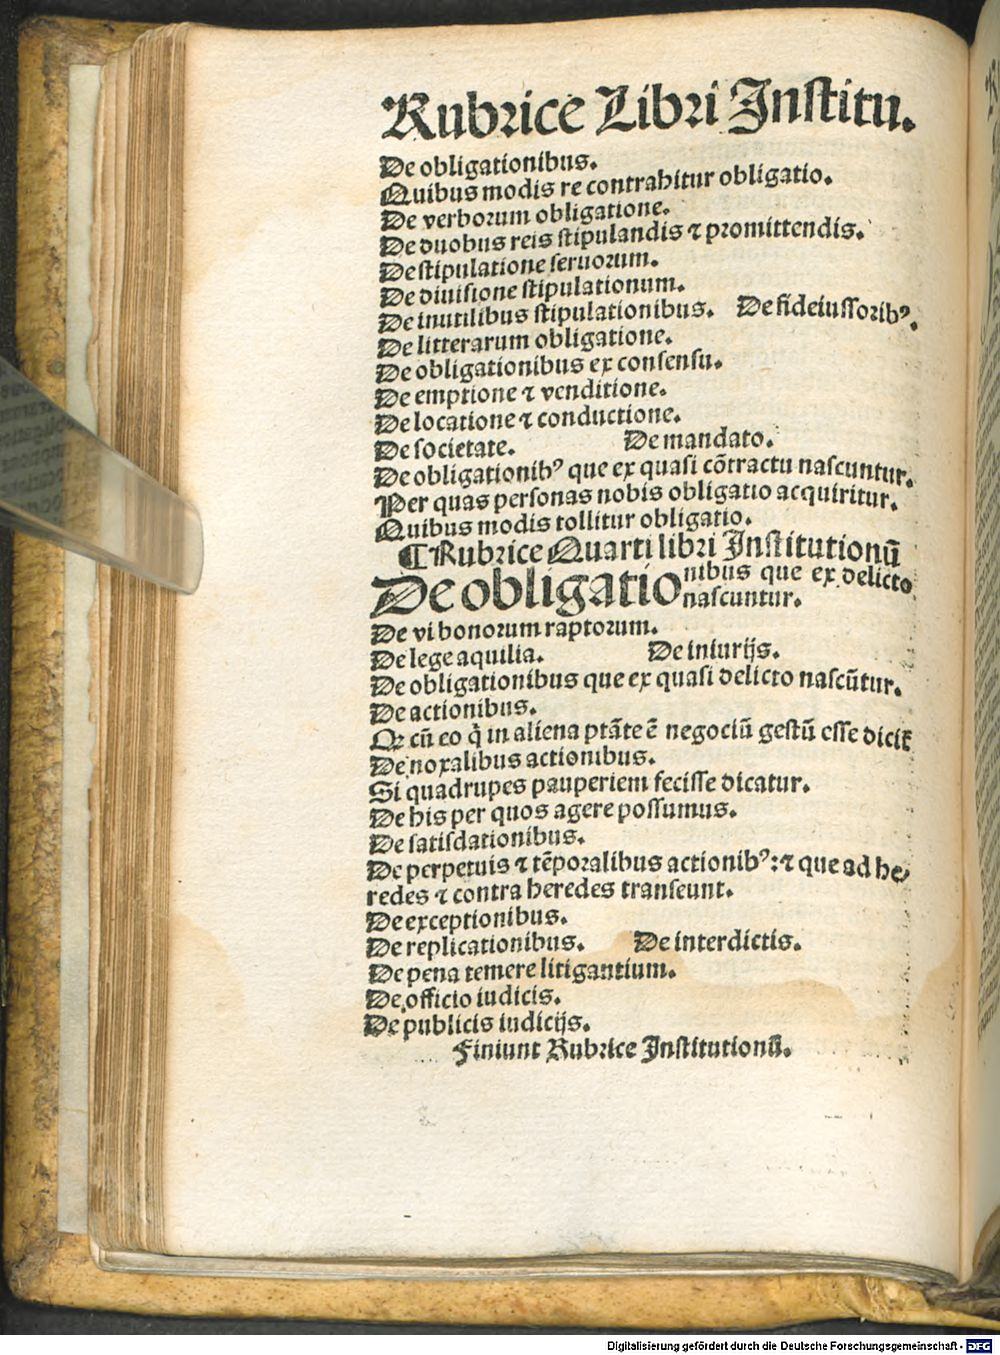 Rubrice Libri Institu.
De obligationibus.
Quibus modis re contrahitur obligatio.
De verborum obligatione.
De duobus reis stipulandis ⁊ promittendis.
De stipulatione seruorum.
De diuisione stipulationum.
De inutilibus stipulationibus. De fideiussoribꝰ.
De litterarum obligatione.
De obligationibus ex consensu.
De emptione ⁊ venditione.
De locatione ⁊ conductione.
De societate. De mandato.
De obligationibꝰ que ex quasi cōtractu nascuntur.
Per quas personas nobis obligatio acquiritur.
Quibus modis tollitur obligatio.
¶ Rubrice Quarti libri Institutionū
De obligationibus que ex delicto
nascuntur.
De vi bonorum raptorum.
De lege aquilia. De iniurijs.
De obligationibus que ex quasi delicto nascūtur.
De actionibus.
cū eo in aliena ptāte ē negociū gestū esse
De noxalibus actionibus.
Si quadrupes pauperiem fecisse dicatur.
De his per quos agere possumus.
De satisdationibus.
De perpetuis ⁊ tēporalibus actionibꝰ: ⁊ que ad he-
redes ⁊ contra heredes transeunt.
De exceptionibus.
De replicationibus. De interdictis.
De pena temere litigantium.
De officio iudicis.
De publicis iudicijs.
Finiunt Rubrice Institutionū.
Digitalisierung gefördert durch die Deutsche Forschungsgemeinschaft - DFG